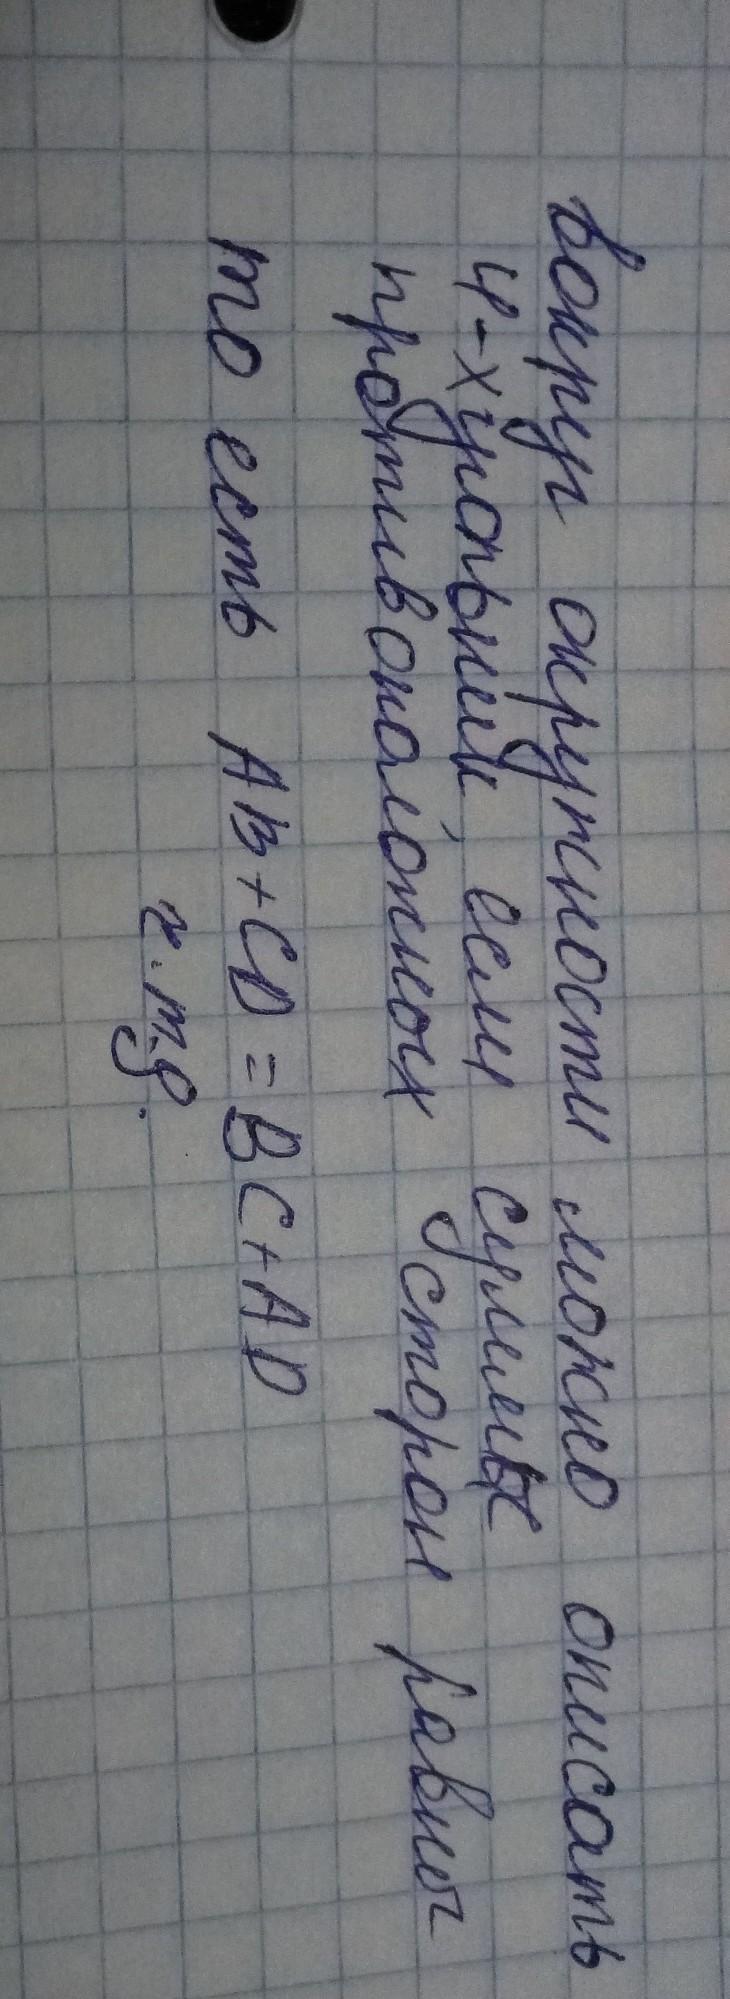 вокруг окружности можно описать
4-хугольник, если суммы
противоположных сторон равны
то есть AB+CD=BC+AD
ч.т.д.